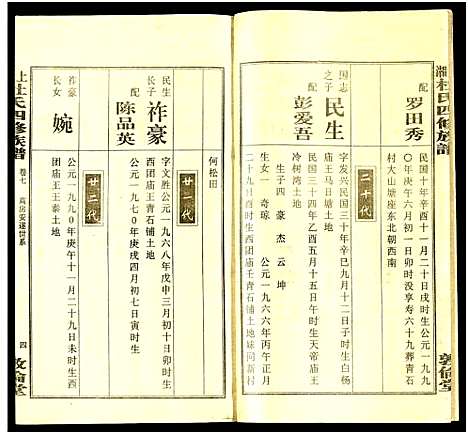 湖杜氏四修族譜
配 罗田秀
民国十年辛酉十一月二十日戌时生公元一九九
〇年庚午六月初一日卯时没享寿六十九葬青石
村大山塘座东北朝西南
二十代
国志之子 民生
配 彭爱吾
字发兴民国三十年辛巳九月十二日未时生白杨
庙王马日塘土地
民国三十四年乙酉五月十一日丑午时生天帝庙王
冷树湾土地
生子四 豪 杰 云 坤
生女一 奇琼 公元一九六六年丙午正月
二十九日酉时生西团庙王青石铺土地妹同新村
敦倫堂
何松田
廿一代
民生长子 祚豪
配 陈品英
字文胜公元一九六八年戊申三月初十日卯时生
西团庙王青石铺土地
公元一九七〇年庚戌四月初七日寅时生
廿二代
祚豪长女 婉
公元一九九〇年庚午十一月二十九日未时生西
团庙王王泰土地
上杜氏四修族譜
卷七
高房安遂世系
四
敦倫堂